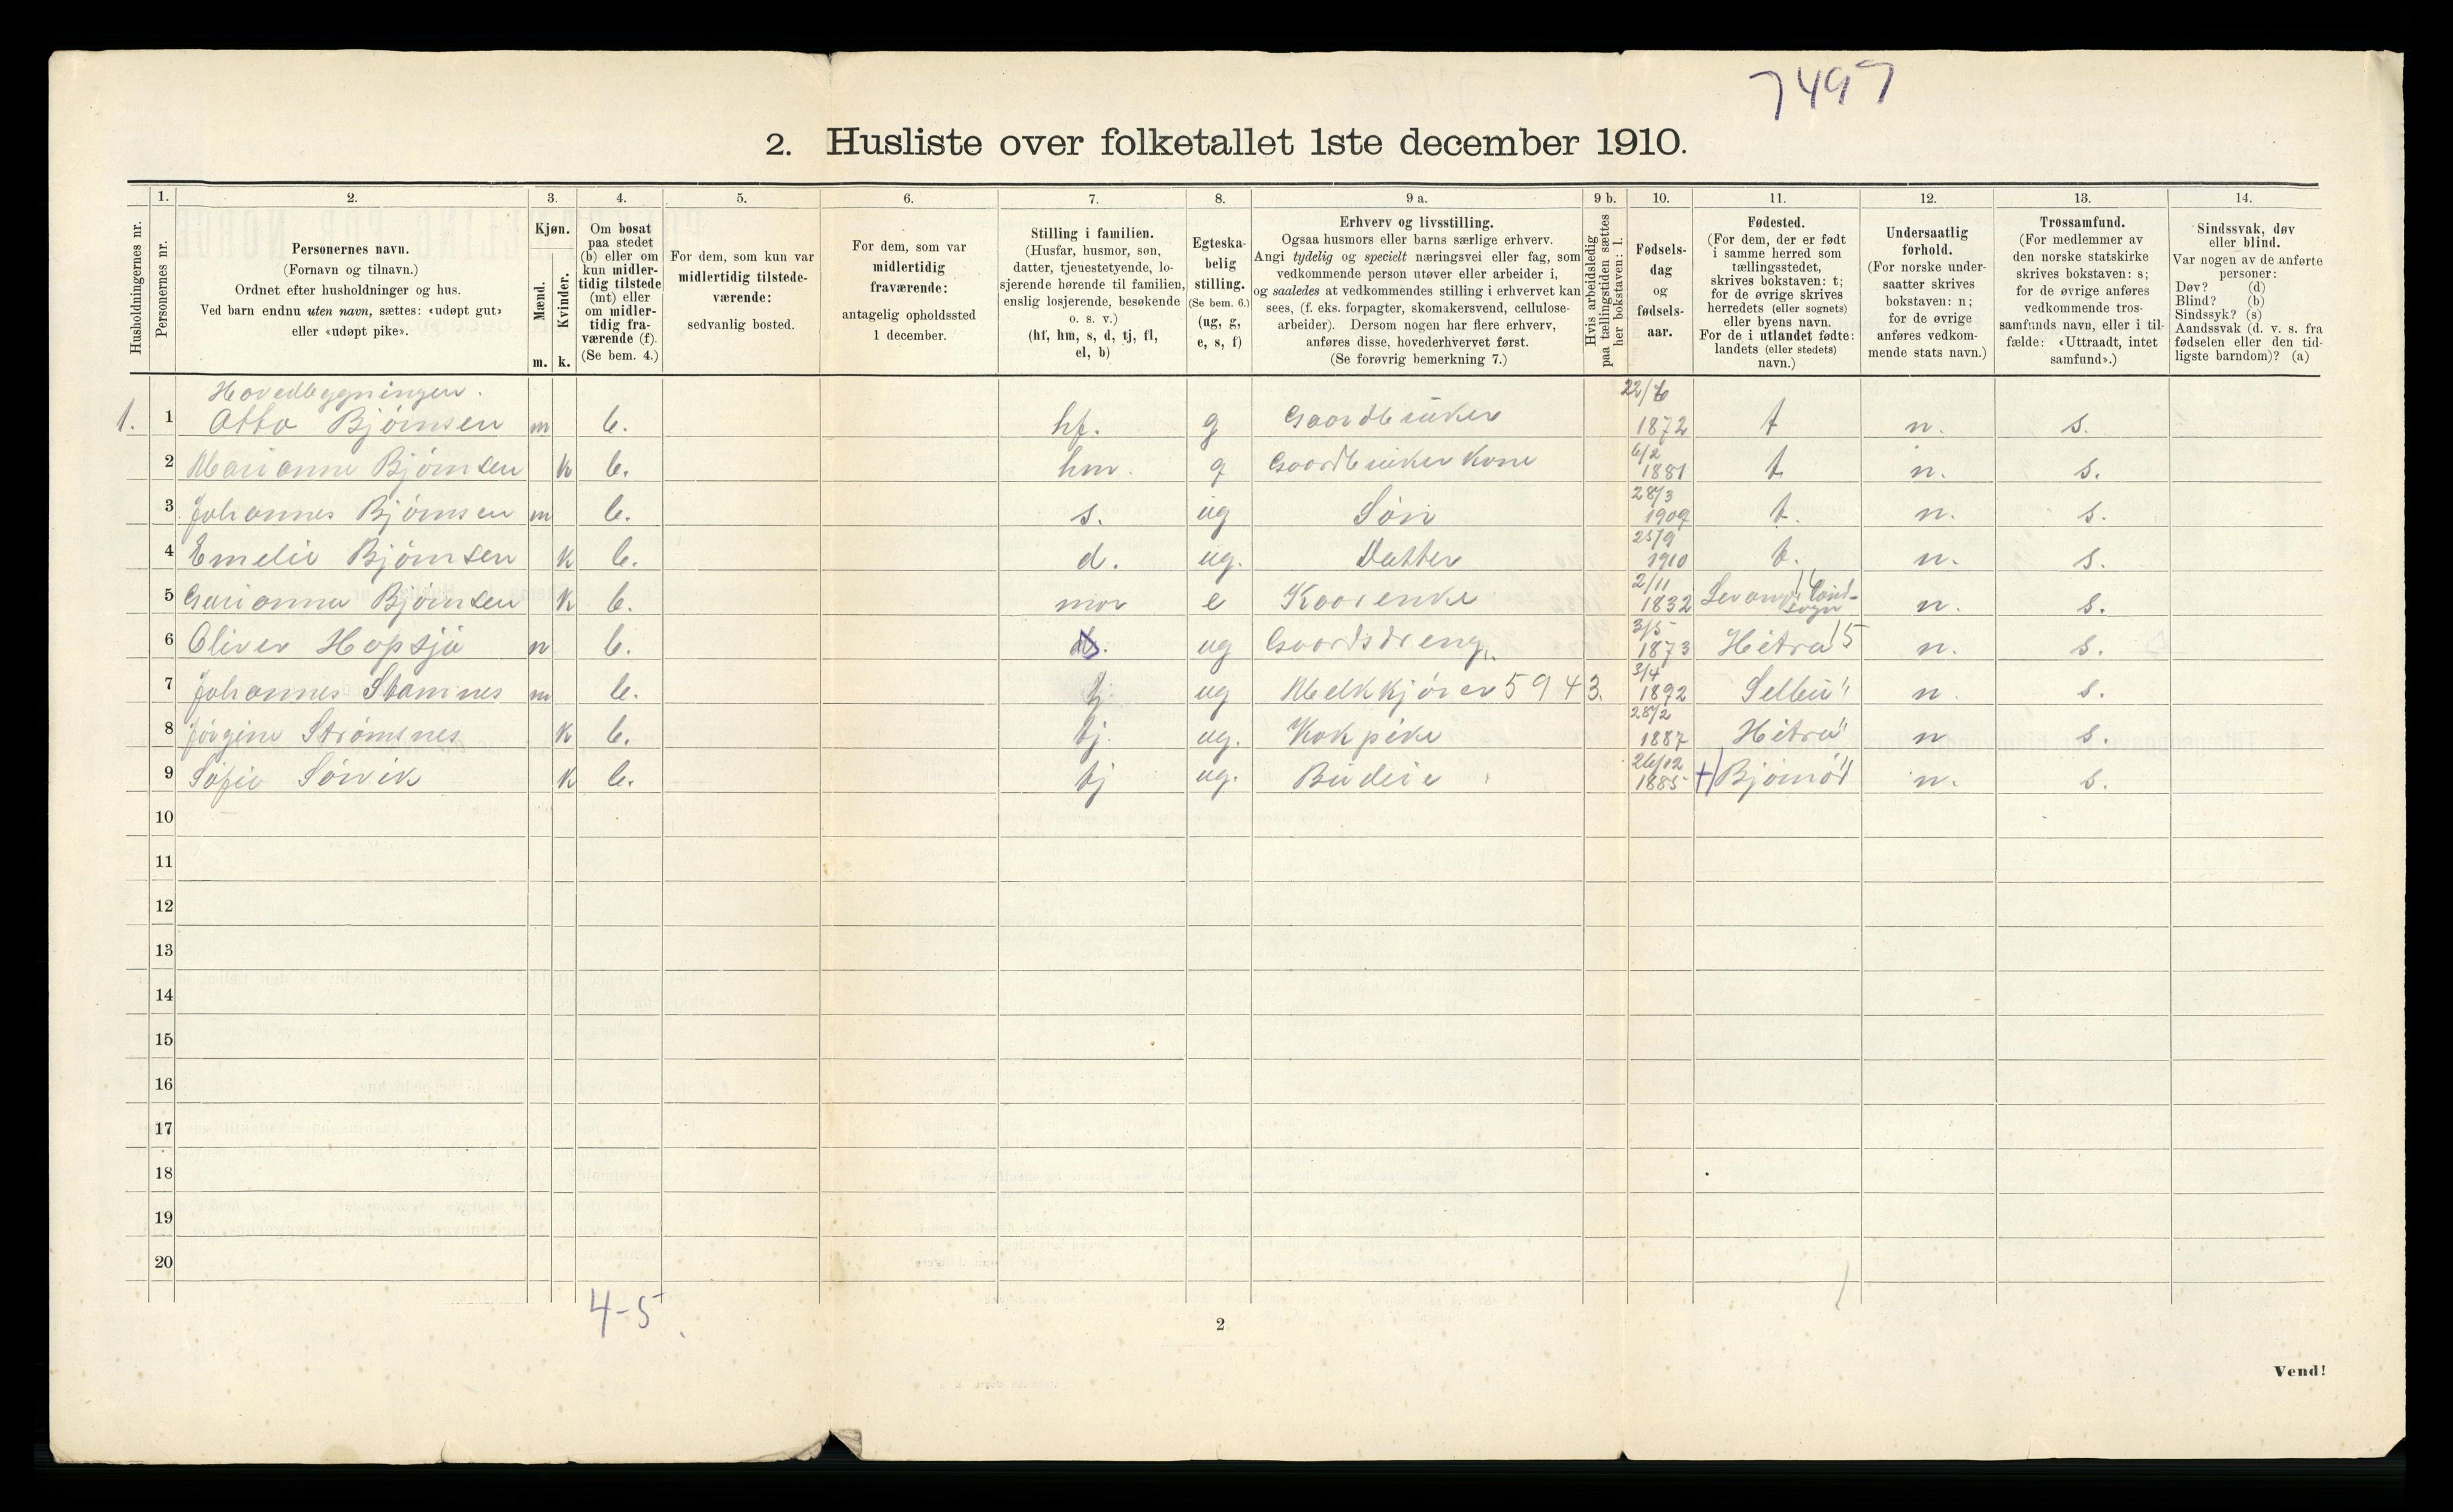 7497
2. Husliste over folketallet 1ste december 1910.
Husholdningernes nr.
1.
Personernes nr.
2.
Personernes navn.
(Fornavn og tilnavn.)
Ordnet efter husholdninger og hus.
Ved barn endnu uten navn, sættes: «udøpt gut»
eller «udøpt pike».
3.
Kjøn.
Mænd.
Kvinder.
m. k.
4.
Om bosat
paa stedet
(b) eller om
kun midler-
tidig tilstede
(mt) eller
om midler-
tidig fra-
værende (f).
(Se bem. 4.)
5.
For dem, som kun var
midlertidig tilstede-
værende:
sedvanlig bosted.
6.
For dem, som var
midlertidig
fraværende:
antagelig opholdssted
1 december.
7.
Stilling i familien.
(Husfar, husmor, søn,
datter, tjenestetyende, lo-
sjerende hørende til familien,
enslig losjerende, besøkende
o. s. v.)
(hf, hm, s, d, tj, fl,
el, b)
8.
Egteska-
belig
stilling.
(Se bem. 6.)
(ug, g,
e, s, f)
9 a.
Erhverv og livsstilling.
Ogsaa husmors eller barns særlige erhverv.
Angi tydelig og specielt næringsvei eller fag, som
vedkommende person utøver eller arbeider i,
og saaledes at vedkommendes stilling i erhvervet kan
sees, (f. eks. forpagter, skomakersvend, cellulose-
arbeider). Dersom nogen har flere erhverv,
anføres disse, hovederhvervet først.
(Se forøvrig bemerkning 7.)
9 b.
Hvis arbeidsledig
paa tællingstiden sættes
her bokstaven: l.
10.
Fødsels-
dag
og
fødsels-
aar.
11.
Fødested.
(For dem, der er født
i samme herred som
tællingsstedet,
skrives bokstaven: t;
for de øvrige skrives
herredets (eller sognets)
eller byens navn.
For de i utlandet fødte:
landets (eller stedets)
navn.)
12.
Undersaatlig
forhold.
(For norske under-
saatter skrives
bokstaven: n;
for de øvrige
anføres vedkom-
mende stats navn.)
13.
Trossamfund.
(For medlemmer av
den norske statskirke
skrives bokstaven: s;
for de øvrige anføres
vedkommende tros-
samfunds navn, eller i til-
fælde: «Uttraadt, intet
samfund».)
14.
Sindssvak, døv
eller blind.
Var nogen av de anførte
personer:
Døv? (d)
Blind? (b)
Sindssyk? (s)
Aandssvak (d. v. s. fra
fødselen eller den tid-
ligste barndom)? (a)
Hovedbygningen.
1. 1 Otto Bjørnsen m b. hf. g Gaardbruker 1872 t n. s.
2 Marianne Bjørnsen k b. hm. g Gaardbruker Kone 6/2 1881 t n. s.
3 Johannes Bjørnsen m b. s. ug Søn 28/3 1909 t. n. s.
4 Emelie Bjørnsen k b. d. ug. Datter 25/9 1910 t. n. s.
5 Bjørnsen k b. mor e Kaarenke 2/11 1832 Levang. Land-sogn n. s.
6 Oliver Hopsjø m b. ug Gaardsdreng 3/5 1873 Hitra 15 n. s.
7 Johannes Stamnes m b. tj ug Melkkjører 5943. 3/4 1892 Selbu n. s.
8 Jørgine Strømsnes k b. tj. ug. Kokpike 28/2 1887 Hitra n s.
9 Sofie Sørvik k b. tj ug. Budeie 26/12 1885 Bjørnør n. s.
10
11
12
13
14
15
16
17
18
19
20
4-5
2
Vend!